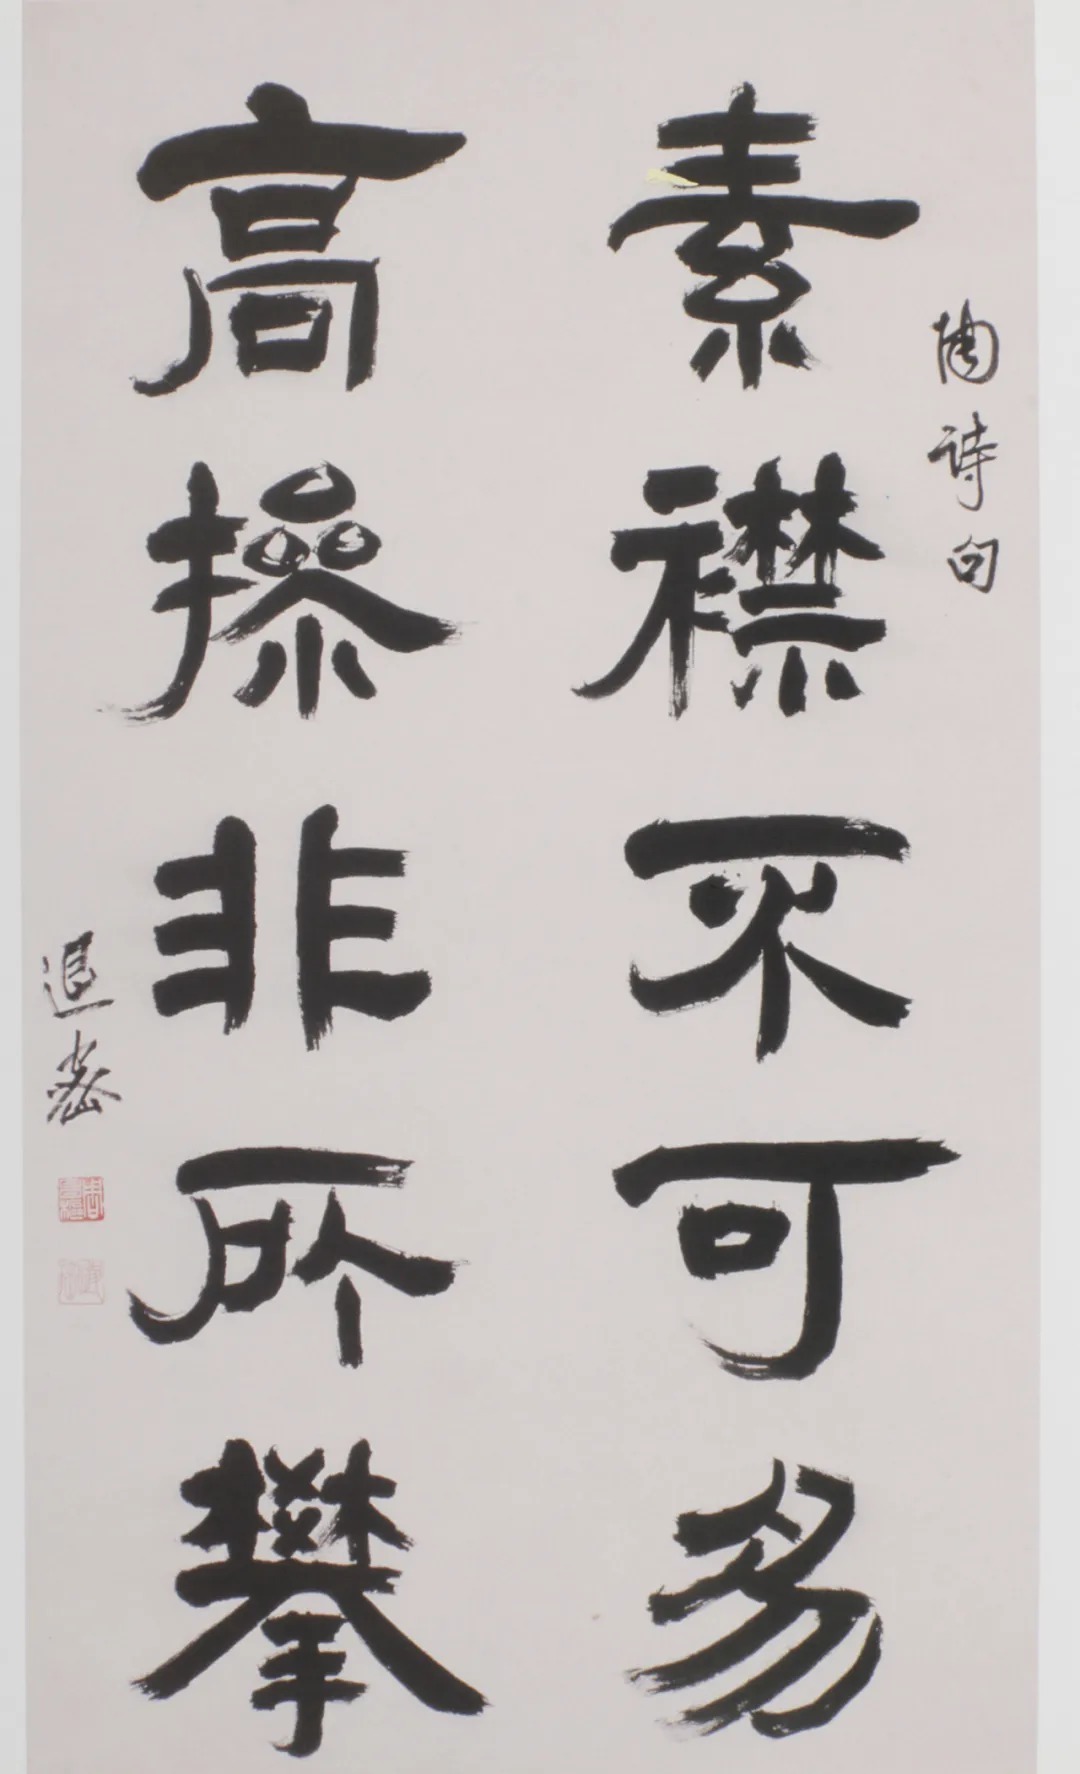 陶诗句
素襟不可易
高操非所攀
退密